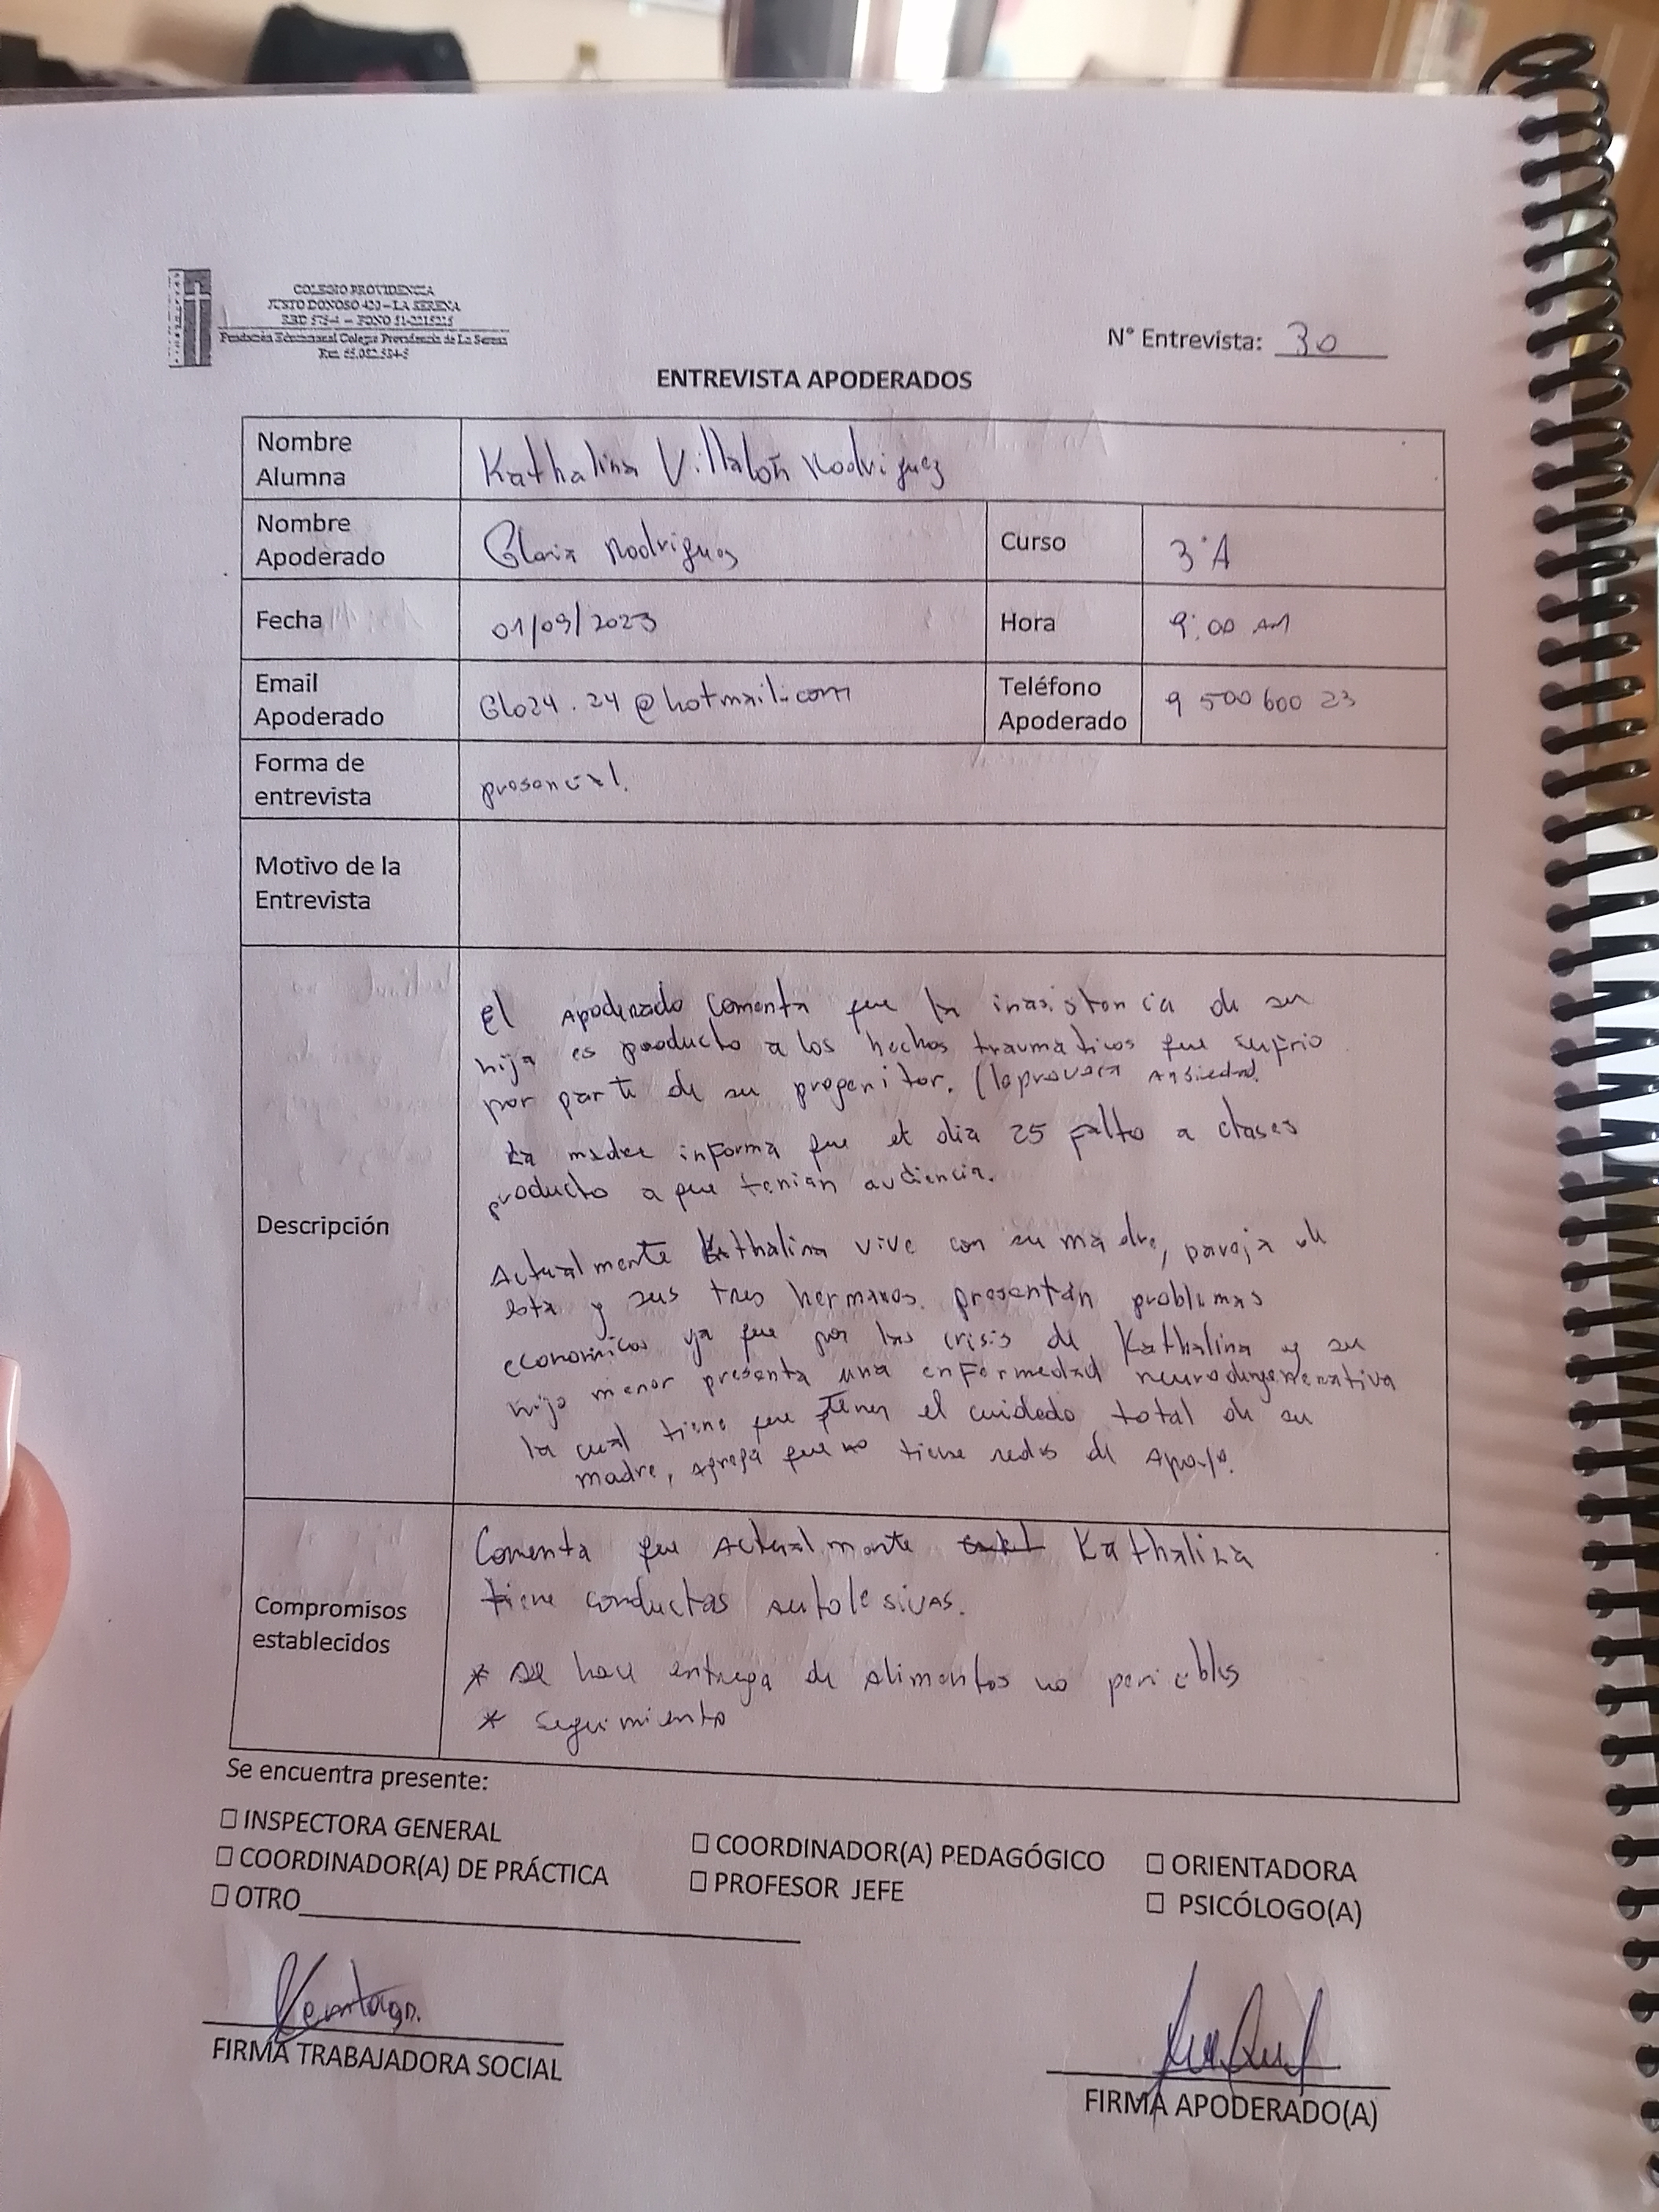 COLEGIO PROVIDENCIA
JUSTO DONOSO 420 – LA SERENA
RBD 575-4 – FONO 51-2215215
Fundación Educacional Colegio Providencia de La Serena
Rut: 65.082.594-5
N° Entrevista: 30
ENTREVISTA APODERADOS
Nombre Alumna
Kathalina Villalón Rodriguez
Nombre Apoderado
Gloria Rodriguez
Curso
3°A
Fecha
01/09/2023
Hora
9:00 AM
Email Apoderado
Glo24.24@hotmail.com
Teléfono Apoderado
9 500 600 23
Forma de entrevista
presencial.
Motivo de la Entrevista
Descripción
El Apoderado comenta que la inasistencia de su
hija es producto a los hechos traumáticos que sufrio
por parte de su progenitor. (le provoca Ansiedad.
La madre informa que el dia 25 falto a clases
producto a que tenian audiencia.
Actualmente Kathalina vive con su madre, pareja de
esta y sus tres hermanos. presentan problemas
economicos ya que por las crisis de Kathalina y su
hijo menor presenta una enfermedad
la cual tiene que tener el cuidado total de su
madre, agrega que no tiene redes de Apoyo.
Compromisos establecidos
Comenta que Actualmente Kathalina
tiene conductas autolesivas.
* se hace entrega de alimentos no pericibles
* Seguimiento
Se encuentra presente:
☐ INSPECTORA GENERAL
☐ COORDINADOR(A) PEDAGÓGICO
☐ ORIENTADORA
☐ COORDINADOR(A) DE PRÁCTICA
☐ PROFESOR JEFE
☐ PSICÓLOGO(A)
☐ OTRO
FIRMA TRABAJADORA SOCIAL
FIRMA APODERADO(A)